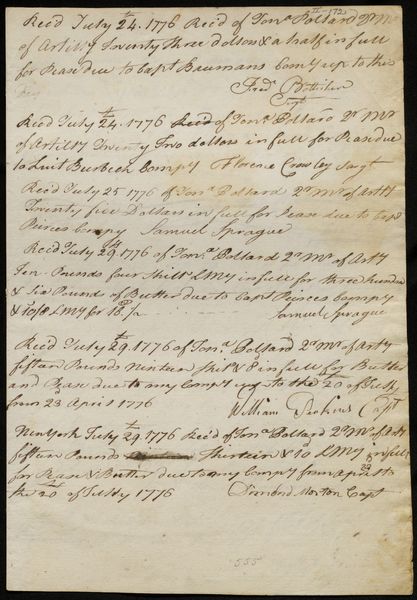 II-172
Recd July 24th. 1776 Rec'd of Jona Pollard Qr Mr
of Artilly Twenty three dollars & a half in full
for Pease due to Capt Beumans Comy up to this
day
Fredk
Sergt
Recd July 24th. 1776 Recd of Jona Pollard Qr Mr
of Artilry Twenty Two dollars in full for Pease due
to Luit Burbeck Compy Florence Crowley Sargt
Recd July 25 1776 of Jona Pollard Qr Mr of Arty
Twenty five Dollars in full for Pease due to Capt
Peirces Compy Samuel Sprague
Recd July 29th 1776 of Jona Pollard Qr Mr of Arty
Ten Pounds four Shills LMy in full for three hundred
& Six Pound of Butter due to Capt Peirces Compy
& 10/8 LMy for
Samuel Sprague
Recd July 29th. 1776 of Jona Pollard Qr Mr of Arty
fifteen Pounds Ninteen Shills & 8 in full for Butter
and Pease due to my Compy up to the 20 of July
from 23 April 1776
William Perkins Capt
New York July 29th. 1776 Rec'd of Jona Pollard Qr Mr of Arty
fifteen Pounds Thirteen & 10 LMy in full
for Pease & Butter due to my Compy from April 23 to
the 20 of July 1776 Dimond Morton Capt
555